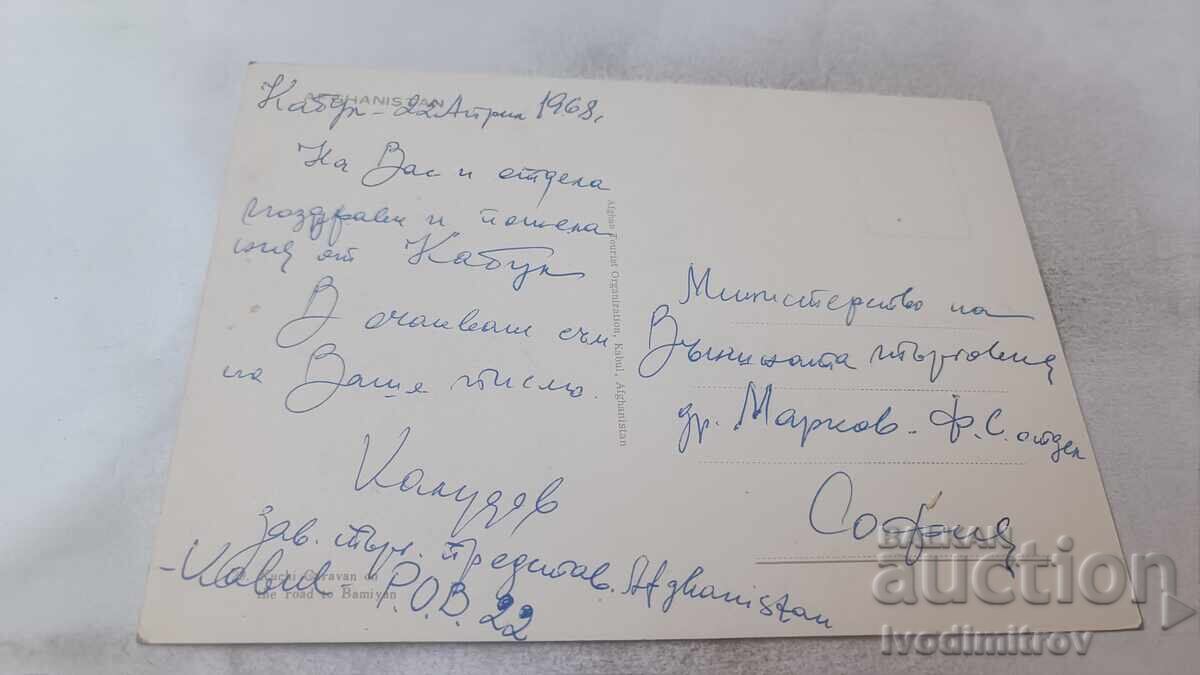 AFGHANISTAN
Кабул - 22 Април 1968 г.
На Вас и отдела
поздрави и пожела
ния от Кабул
В очакване съм
на Ваше писмо.
зав. търг. представ. Afghanistan
- Kabul - P.O.B. 22
Kuchi Caravan on
the road to Bamiyan
Afghan Tourist Organization, Kabul, Afghanistan
Министерство на
Външната търговия
др. Марков - Ф.С. отдел
София
BALKAN
auction
Ivodimitrov